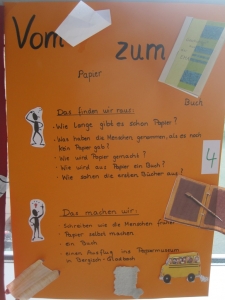 Vom
zum
Papier
Buch
Das finden wir raus:
- Wie lange gibt es schon Papier?
- Was haben die Menschen genommen, als es noch
kein Papier gab?
- Wie wird Papier gemacht?
- Wie wird aus Papier ein Buch?
- Wie sahen die ersten Bücher aus?
4
Das machen wir:
- Schreiben wie die Menschen früher
- Papier selbst machen
- ein Buch
- einen Ausflug ins Papiermuseum
in Bergisch-Gladbach